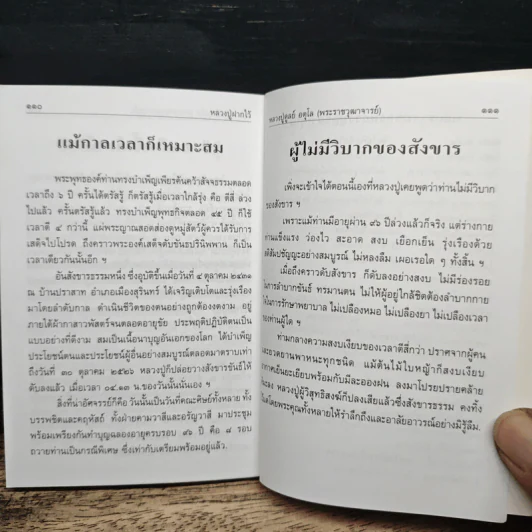 ๑๑๐
หลวงปู่ฝากไว้
แม้กาลเวลาก็เหมาะสม
พระพุทธองค์ท่านทรงบำเพ็ญเพียรค้นคว้าสัจจธรรมตลอด
เวลาถึง ๖ ปี ครั้นได้ตรัสรู้ ก็ตรัสรู้เมื่อเวลาใกล้รุ่ง คือ ตีสี่ ล่วง
ไปแล้ว ครั้นตรัสรู้แล้ว ทรงบำเพ็ญพุทธกิจตลอด ๔๕ ปี ก็ใช้
เวลาตี ๔ กว่านี้ แผ่พระญาณสอดส่องดูหมู่สัตว์ผู้ควรได้รับการ
เสด็จไปโปรด ถึงคราวพระองค์เสด็จดับขันธปรินิพพาน ก็เป็น
เวลาเดียวกันนั้นอีก ฯ
อันสังขารธรรมหนึ่ง ซึ่งอุบัติขึ้นเมื่อวันที่ ๔ ตุลาคม ๒๔๓๑
ณ บ้านปราสาท อำเภอเมืองสุรินทร์ ได้เจริญเติบโตและรุ่งเรือง
มาโดยลำดับกาล ดำเนินชีวิตของตนอย่างถูกต้องงดงาม อยู่
ภายใต้ผ้ากาสาวพัสตร์จนตลอดอายุขัย ประพฤติปฏิบัติตนเป็น
แบบอย่างที่ดีงาม สมเป็นเนื้อนาบุญอันเอกของโลก ได้บำเพ็ญ
ประโยชน์ตนและประโยชน์ผู้อื่นอย่างสมบูรณ์ตลอดมาตราบเท่า
ถึงวันที่ ๓๐ ตุลาคม ๒๕๒๖ หลวงปู่ก็ปล่อยวางสังขารขันธ์ให้
ดับลงแล้ว เมื่อเวลา ๐๔.๑๓ น.ของวันนั้นนั่นเอง ฯ
สิ่งที่น่าอัศจรรย์ก็คือ วันนั้นเป็นวันที่คณะศิษย์ทั้งหลาย ทั้ง
บรรพชิตและคฤหัสถ์ ทั้งฝ่ายคามวาสีและอรัญวาสี มาประชุม
พร้อมเพรียงกันทำบุญฉลองอายุครบรอบ ๙๖ ปี คือ ๘ รอบ
ถวายท่านเป็นกรณีพิเศษ ซึ่งเท่ากับเตรียมพร้อมอยู่แล้ว.
หลวงปู่ดูลย์ อตุโล (พระราชวุฒาจารย์)
๑๑๑
ผู้ไม่มีวิบากของสังขาร
เพิ่งจะเข้าใจได้ตอนนี้เองที่หลวงปู่เคยพูดว่าท่านไม่มีวิบาก
ของสังขาร ฯ
เพราะแม้ท่านมีอายุผ่าน ๙๖ ปีล่วงแล้วก็จริง แต่ร่างกาย
ท่านแข็งแรง ว่องไว สะอาด สงบ เยือกเย็น รุ่งเรืองด้วย
สติสัมปชัญญะอย่างสมบูรณ์ ไม่หลงลืม เผอเรอใด ๆ ทั้งสิ้น ฯ
เมื่อถึงคราวดับสังขาร ก็ดับลงอย่างสงบ ไม่มีร่องรอย
ในการลำบากขันธ์ ทรมานตน ไม่ให้ผู้อยู่ใกล้ชิดต้องลำบากกาย
ในการรักษาพยาบาล ไม่เปลืองหมอ ไม่เปลืองยา ไม่เปลืองเวลา
ของท่านผู้ใด ฯ
ท่ามกลางความสงบเงียบของเวลาตีสี่กว่า ปราศจากผู้คน
และยวดยานพาหนะทุกชนิด แม้ต้นไม้ใบหญ้าก็สงบเงียบ
อากาศเย็นยะเยียบพร้อมกับมีละอองฝน ลงมาโปรยปรายคล้าย
หลวงปู่ผู้วิสุทธิสงฆ์ก็ปลงเสียแล้วซึ่งสังขารธรรม คงทิ้ง
แต่โดยพระคุณทั้งหลายให้รำลึกถึงและอาลัยอาวรณ์อย่างมิรู้ลืม.